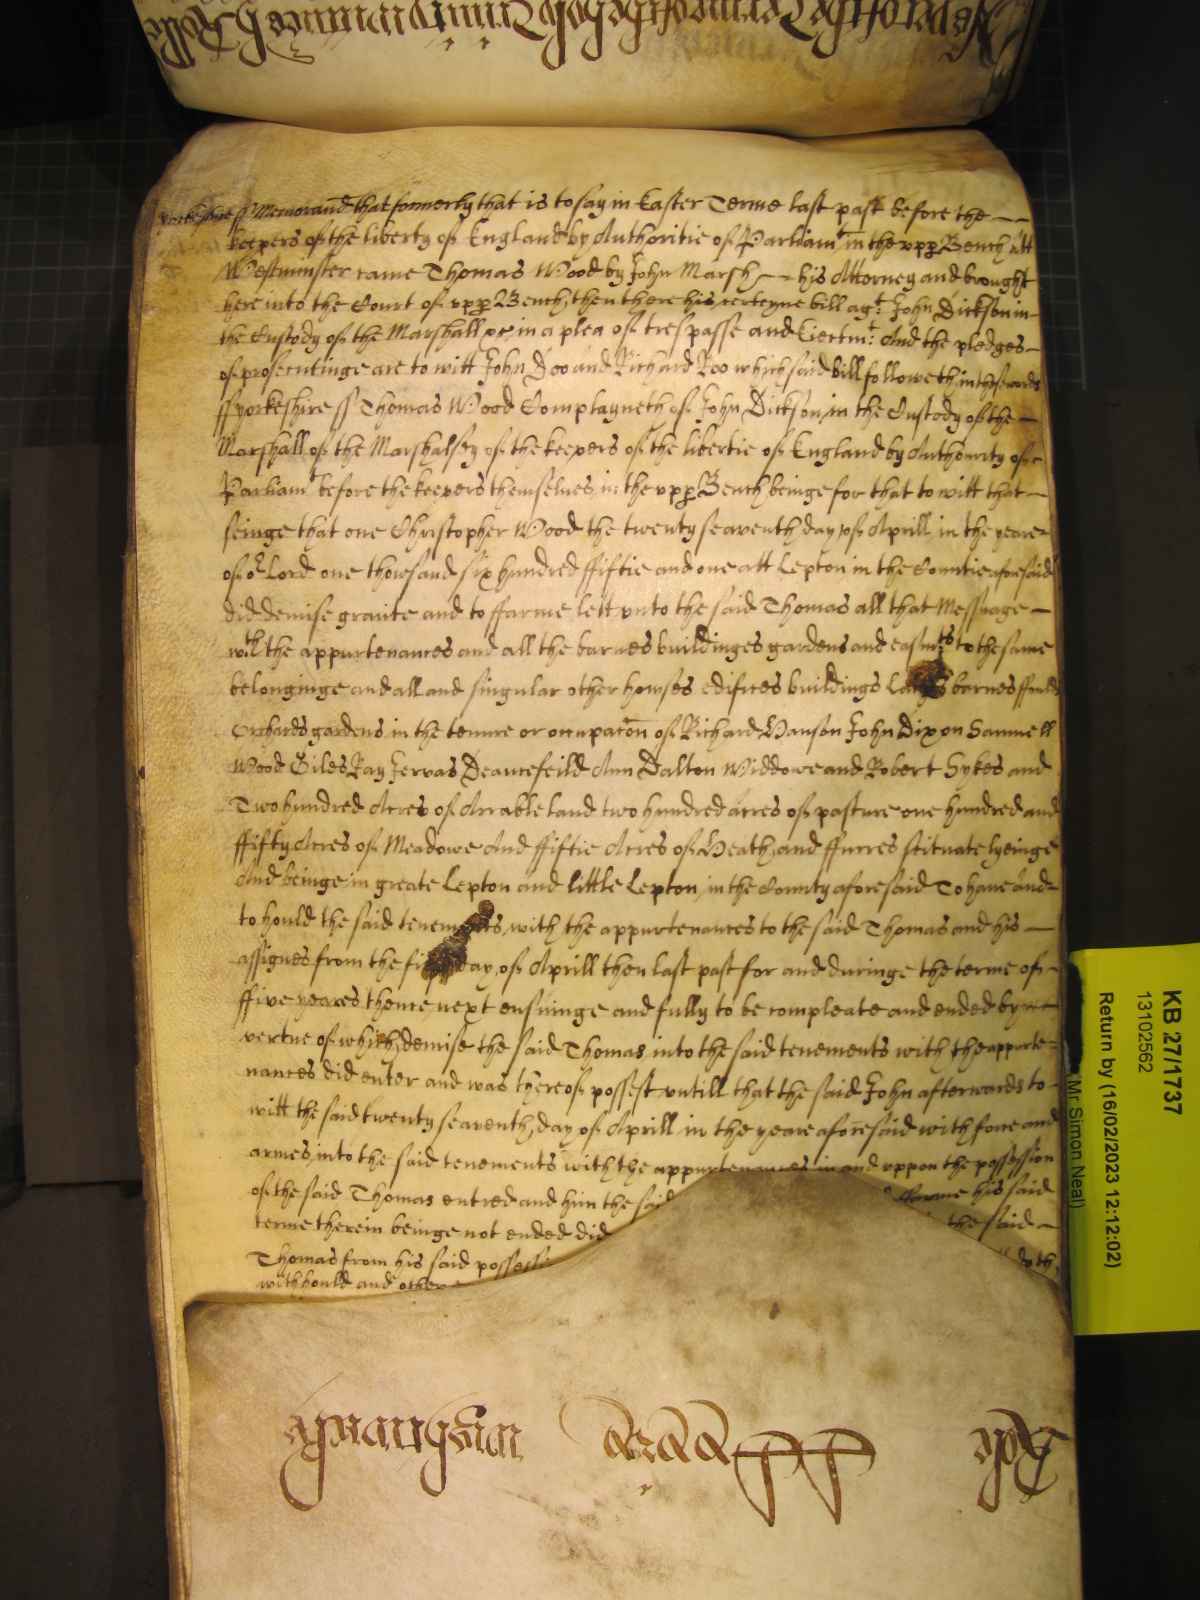 yorkeshire ss Memorand that formerly that is to say in Easter Terme last past before the
keepers of the liberty of England by Authoritie of Parliamt in the upp Bench att
Westminster came Thomas Wood by John Marsh his Attorney and brought
here into the Court of upp Bench then there his certeyne bill agt: John Dickson in
the Custody of the Marshall &c in a plea of trespasse and Eiectmt: And the pledges
of prosecutinge are to witt John Doo and Richard Roo which said bill followeth in these words
ss yorkeshire ss Thomas Wood Complayneth of John Dickson in the Custody of the
Marshall of the Marshalsey of the keepers of the libertie of England by Authourity of
Parliamt before the keepers themselves in the upp Bench beinge for that to witt that
seinge that one Christopher Wood the twenty seaventh day of Aprill in the yeare
of or Lord one thowsand six hundred ffiftie and one att Lepton in the Countie aforesaid
did demise graunte and to ffarme lett unto the said Thomas all that Messuage
wth the appurtenances and all the barnes buildinges gardens and easmts to the same
belonginge and all and singular other howses edifices buildings barnes ffoulds
Orchards gardens in the tenure or occupacon of Richard Hanson John Dixon Samuell
Wood Giles Ray Jervas Deanefeild Ann Dalton Widdowe and Robert Sykes and
Two hundred Acres of Arrable land two hundred acres of pasture one hundred and
ffifty Acres of Meadowe And ffiftie Acres of Heath and ffurres scituate lyeinge
And beinge in greate Lepton and little Lepton in the County aforesaid To have and
to hould the said tenements with the appurtenances to the said Thomas and his
assignes from the day of Aprill then last past for and duringe the terme of
ffive yeares thence next ensuinge and fully to be compleate and ended by
vertue of which demise the said Thomas into the said tenements with the apparte-
nances did enter and was thereof possest untill that the said John afterwards to
witt the said twenty seaventh day of Aprill in the yeare aforesaid with force and
armes into the said tenements with the appurtenances in and uppon the possession
of the said Thomas entred and him the said his said
terme therein beinge not ended did the said
Thomas from his said doth
withhould and other
KB 27/1737
13102562
Return by (16/02/2023 12:12:02)
Mr Simon Neal)